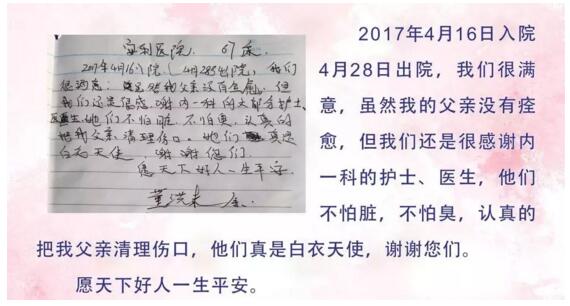 宝利医院, 67床
2017年4月16入院, 4月28号出院, 我们
很满意: 虽然我父亲没有痊愈, 但
我们还是很感谢内一科的大部分护士、
医生她们不怕脏, 不怕臭, 认真的
把我父亲清理伤口。她们真是
白衣天使 谢谢您们。
愿天下好人一生平安
董洪来
2017年4月16日入院
4月28日出院，我们很满
意，虽然我的父亲没有痊
愈，但我们还是很感谢内
一科的护士、医生，他们
不怕脏，不怕臭，认真的
把我父亲清理伤口，他们真是白衣天使，谢谢您们。
愿天下好人一生平安。